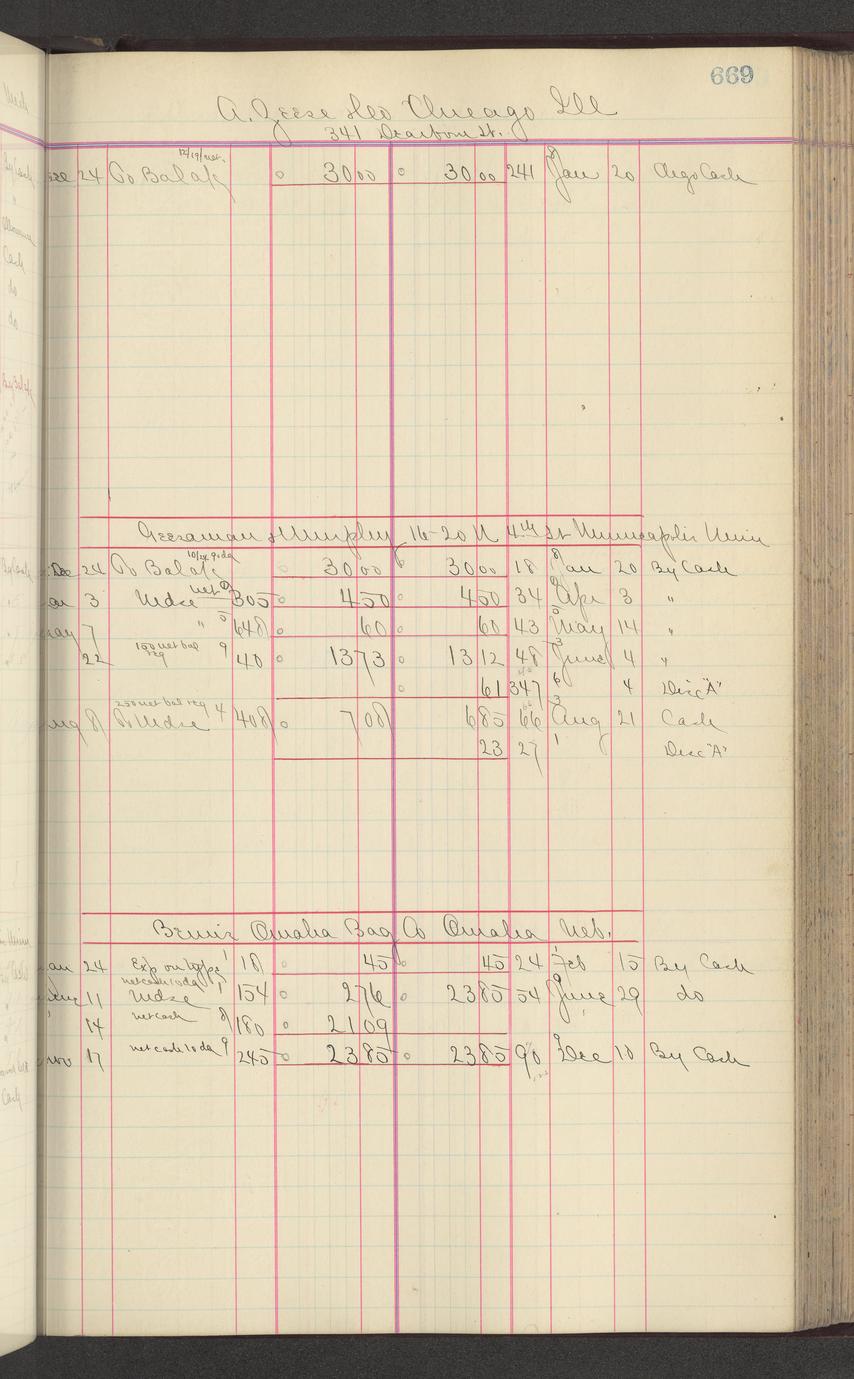 669
Chicago Ill
341 Dearborn St.
12/19/ net.
24 To Bal a/c 30 00 30 00 241 Jan 20 Chgo Cash
& Murphy 16-20 N 4th St Minneapolis Minn
10/24 90 da
Dec 24 To Bal a/c 30 00 30 00 18 Jan 20 By Cash
3 Mdse net 9 305 4 50 4 50 34 Apr 3 "
May 7 " 5 648 60 60 43 May 14 "
22 150 net bal req 9 40 13 73 13 12 48 June 4 "
61 347 6 4 Disc "A"
250 net bal req
Aug 8 To Mdse 4 408 7 08 6 85 66 Aug 21 Cash
23 27 1 Disc "A"
Bemis Omaha Bag Co Omaha Neb.
Jan 24 Exp on type 1 18 45 45 24 Feb 15 By Cash
net cash 10 da
11 Mdse 1 154 2 76 23 85 54 June 29 do
14 net cash 8 180 21 09
Nov 17 net cash 10 da 9 245 23 85 23 85 90 Dec 10 By Cash